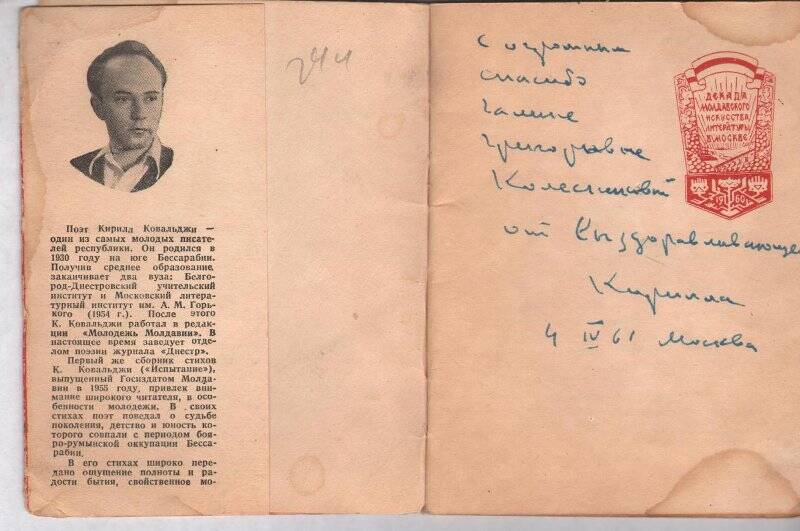 Поэт Кирилл Ковальджи —
один из самых молодых писате-
лей республики. Он родился в
1930 году на юге Бессарабии.
Получив среднее образование,
заканчивает два вуза: Белго-
род-Днестровский учительский
институт и Московский литера-
турный институт им. А. М. Горь-
кого (1954 г.). После этого
К. Ковальджи работал в редак-
ции «Молодежь Молдавии». В
настоящее время заведует отде-
лом поэзии журнала «Днестр».
Первый же сборник стихов
К. Ковальджи («Испытание»),
выпущенный Госиздатом Молда-
вии в 1955 году, привлек вни-
мание широкого читателя, в осо-
бенности молодежи. В своих
стихах поэт поведал о судьбе
поколения, детство и юность ко-
торого совпали с периодом бояр-
о-румынской оккупации Бесса-
рабии.
В его стихах широко пере-
дано ощущение полноты и ра-
дости бытия, свойственное мо-
с огромным
спасибо
Галине
Григорьевне
Колесниковой
от выздоравливающего
Кирилла
4 IV 61 Москва
ДЕКАДА
МОЛДАВСКОГО
ИСКУССТВА
ЛИТЕРАТУРЫ
В МОСКВЕ
1960